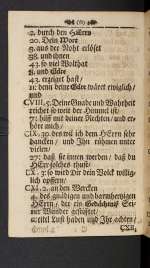 2. durch den HErrn
20. Dein Wort
9. aus der Noht erlöset
38. und ihnen
43. so viel Wolthat
8. und Ehre
43. ergetzet hast/
11. denn deine Ehre wäret ewiglich/
und
CVIII. 5. Deine Gnade und Wahrheit
reichet so weit der Himmel ist/
7. hilff mit deiner Rechten/ und er-
höre mich/
CIX. 30. denn ich dem HErrn sehr
dancken/ und Ihn rühmen unter
vielen/
27. daß sie innen werden/ daß du
HErr solches thust/
CX. 3. so wird Dir dein Volck willig-
lich opffern/
CXI. 2. an den Wercken
4. des gnädigen und barmhertzigen
HErrn/ der ein Gedächtniß Sei-
ner Wunder gestifftet/
2. eitel Lust haben und Ihr achten/
CXII.